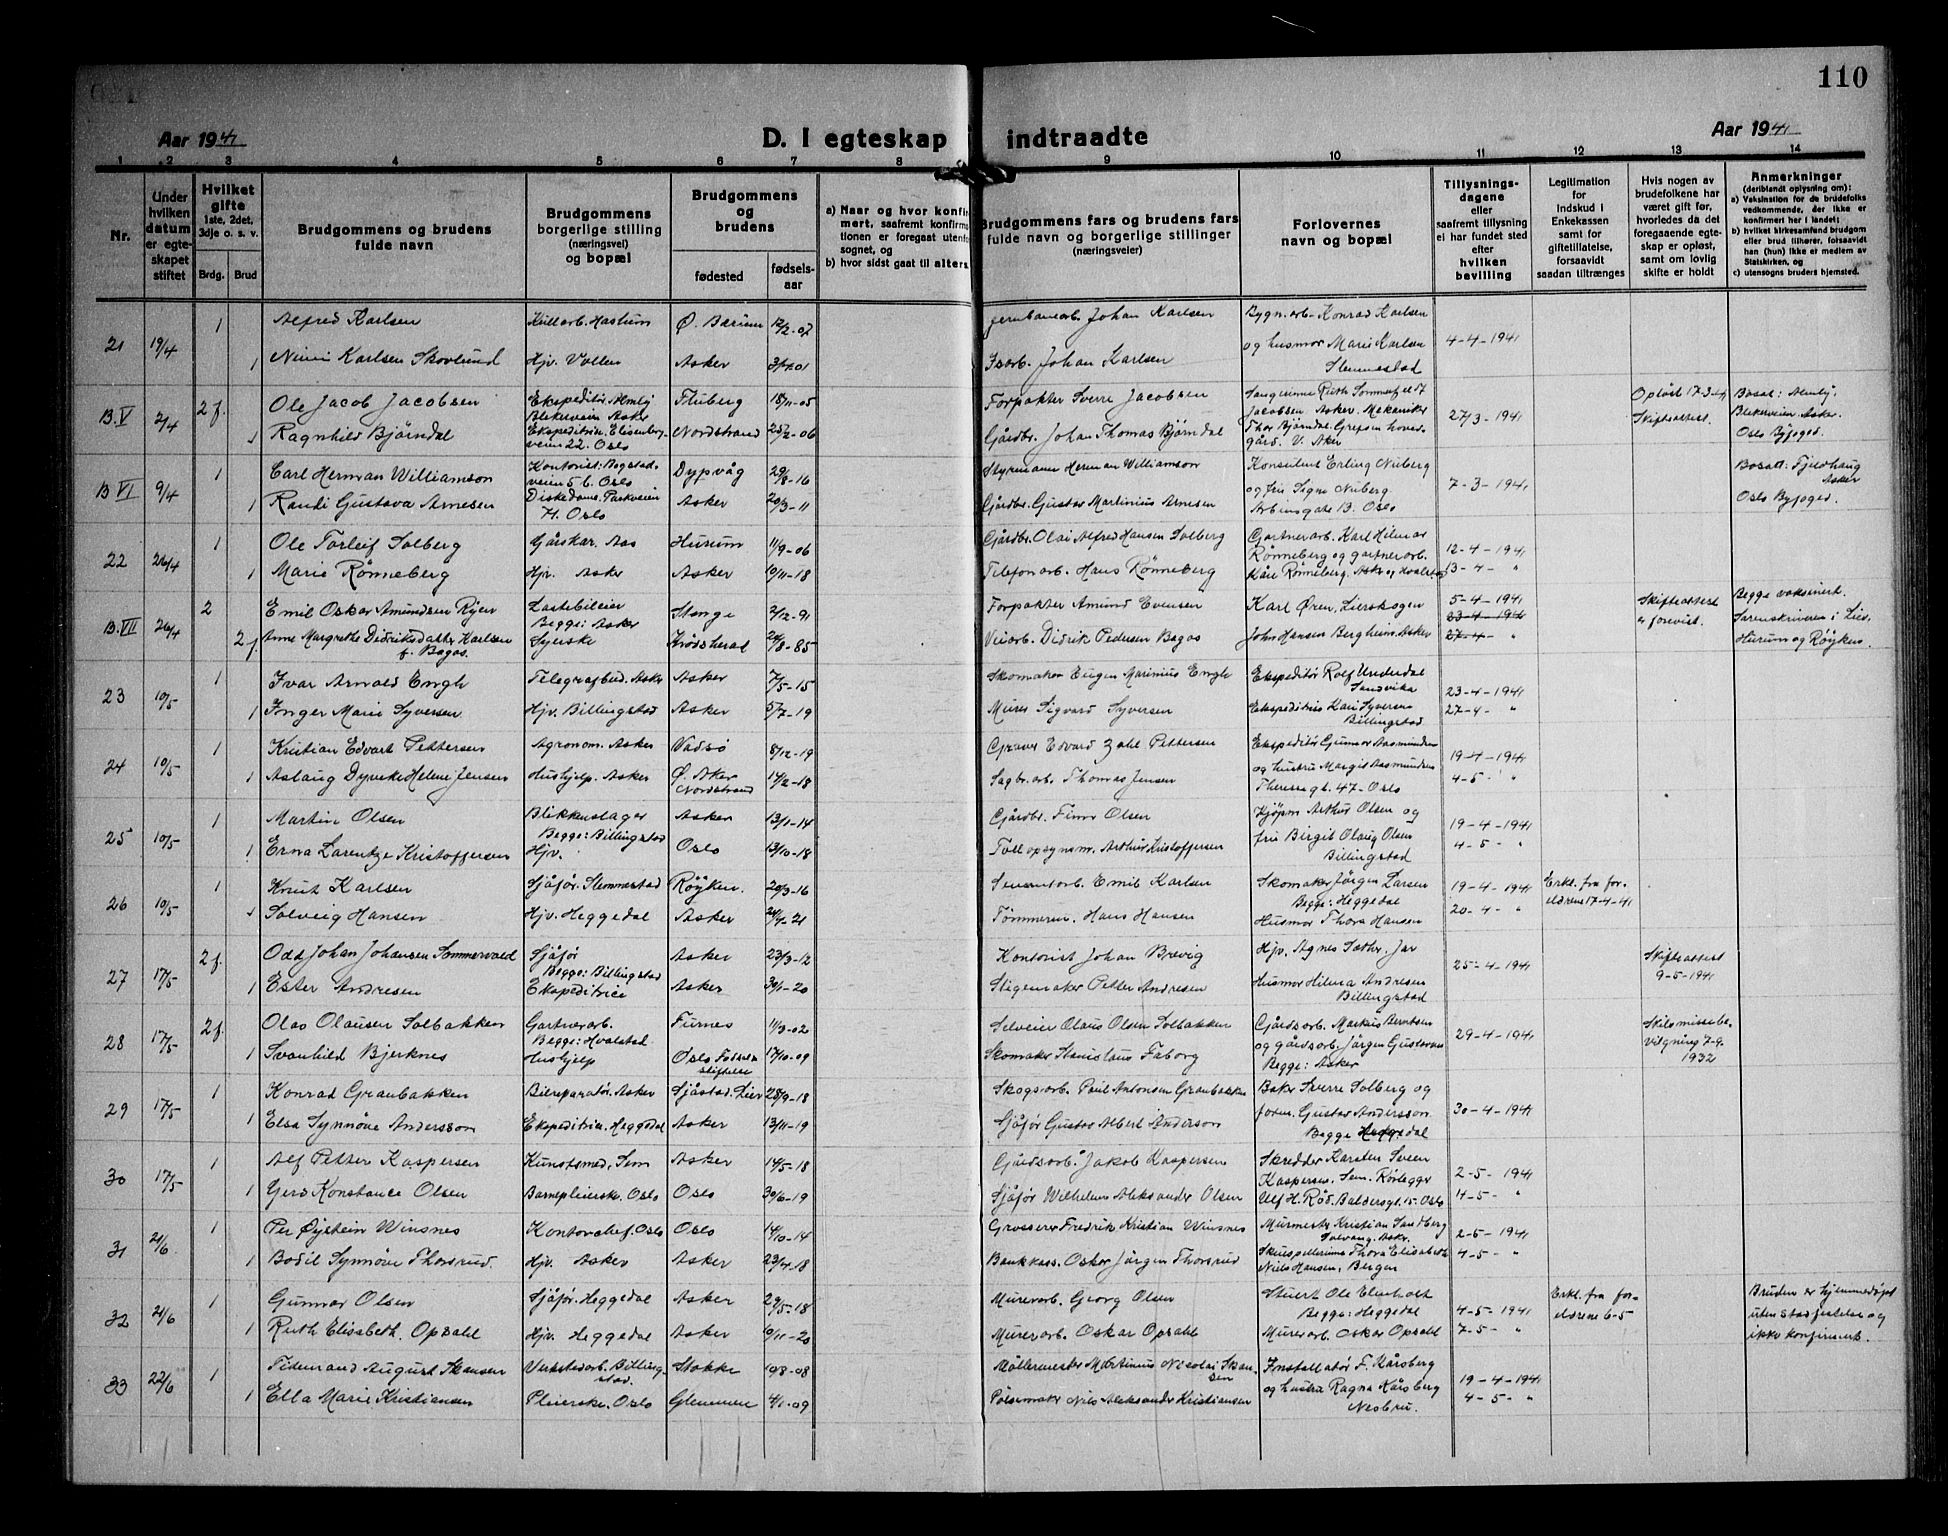 110
Aar 1941
D. I egteskap indtraadte
Aar 1941
1 2 3 4 5 6 7 8 9 10 11 12 13 14
Nr.
Under hvilken datum er egteskapet stiftet
Hvilket gifte 1ste, 2det, 3dje o. s. v.
Brdg. Brud
Brudgommens og brudens fulde navn
Brudgommens borgerlige stilling (næringsvei) og bopæl
Brudgommens og brudens
fødested
fødselsaar
a) Naar og hvor konfirmert, saafremt konfirmationen er foregaat utenfor sognet, og
b) hvor sidst gaat til alters
Brudgommens fars og brudens fars fulde navn og borgerlige stillinger (næringsveier)
Forlovernes navn og bopæl
Tillysningsdagene eller saafremt tillysning ei har fundet sted efter hvilken bevilling
Legitimation for Indskud i Enkekassen samt for giftetillatelse, forsaavidt saadan tiltrænges
Hvis nogen av brudefolkene har været gift før, hvorledes da det foregaaende egteskap er opløst, samt om lovlig skifte er holdt
Anmerkninger (deriblandt oplysning om):
a) Vaksination for de brudefolks vedkommende, der ikke er konfirmert her i landet;
b) hvilket kirkesamfund brudgom eller brud tilhører, forsaavidt han (hun) ikke er medlem av Statskirken, og
c) utensogns bruders hjemsted.
21 19/4 1 Alfred Karlsen Ø. Bærum 12/2-07 Johan Karlsen Bygn.arb. Konrad Karlsen
1 Karlsen Skovlund Hjv. Vollen Asker 3/7-01 Johan Karlsen og husmor Marie Karlsen Slemmestad 4-4-1941
B.V 2/4 2f. Ole Jacob Jacobsen Ekspeditør. Blekerveien Asker 18/11-05 Forpakter Sverre Jacobsen Jacobsen Asker. Mekaniker 27/3-1941 Opløst 17-3-41 Skifteattest. Bosatt: Blekerveien. Asker.
1 Ragnhild Bjørndal Ekspeditrise. Elisenbergveien 22. Oslo Nordstrand 25/2-06 Gårdbr. Johan Thomas Bjørndal Thor Bjørndal. Grefsen hovedgård. V. Aker Oslo Byfoged.
B VI 9/4 1 Carl Herman Williamson Kontorist: Bogstadveien 5 b. Oslo Dypvåg 29/8-16 Styrmann Herman Williamson Konsulent Erling Nuberg 7-3-1941 Bosatt: Fjeldhaug Asker
1 Randi Gustava Arnesen Diskedame. Parkveien 71. Oslo Asker 20/3-11 Gårdbr. Gustav Martinius Arnesen og fru Signe Nuberg Arbinsgate 13. Oslo Oslo Byfoged.
22 26/4 1 Ole Torleif Solberg Gårskar. Aas Hurum 11/9-06 Gårdbr. Olai Alfred Hansen Solberg Gartnerarb. Karl Hilmar 12-4-1941
1 Marie Rønneberg Hjv. Asker Asker 10/11-18 Telefonarb. Hans Rønneberg Rønneberg og gartnerarb. Kåre Rønneberg. Asker og Hvalstad 13-4- "
B.VII 26/4 2 Emil Oskar Amundsen Ryen Lastebileier Begge: Asker Stange 2/12-91 Forpakter Amund Evensen Karl Øren, Lierskogen 5-4-1941 23-4-1941 Skifteattest er forevist. Begge vaksinert.
2f. Anne Margrethe Didriksdatter Karlsen f. Bagås. Syerske Krødsherad 24/8-85 Veiarb. Didrik Pedersen Bagås John Hansen Bergheim. Asker 27-4- " Sorenskriveren i Lier, Hurum og Røyken.
23 10/5 1 Ivar Arnold Engh Telegrafbud. Asker Asker 7/5-15 Skomaker Eugen Marinius Engh Ekspeditør Rolf Underdal Sandvika 23-4-1941
1 Inger Marie Syversen Hjv. Billingstad Asker 5/7-19 Murer Sigvard Syversen Ekspeditrise Kari Syversen Billingstad 27-4- "
24 10/5 1 Kristian Edvart Pettersen Agronom. Asker Vadsø 8/12-19 Graver Edvard Zahl Pettersen Ekspeditør Gunnar Aasmundsen 19-4-1941
1 Aslaug Dyveke Helene Jensen Hushjelp. Asker Ø. Aker Nordstrand 14/2-18 Sagbr.arb. Thomas Jensen og hustru Margit Aasmundsen Theresegt. 47- Oslo 4-5- "
25 10/5 1 Martin Olsen Blikkenslager Begge: Billingstad Asker 13/1-14 Gårdbr. Finn Olsen Kjøpm Arthur Olsen og 19-4-1941
1 Erna Larentze Kristoffersen Hjv. Oslo 13/10-18 Tollopsynsm. Arthur Kristoffersen fru Birgit Olaug Olsen Billingstad 4-5- "
26 10/5 1 Knut Karlsen Sjåfør. Slemmestad Røyken. 20/3-16 Sementarb. Emil Karlsen Skomaker Jörgen Larsen Begge: Heggedal 19-4-1941 Erkl. fra foreldrene 17-4-41
1 Solveig Hansen Hjv. Heggedal Asker 24/4-21 Tømmerm. Hans Hansen Husmor Thora Hansen 20-4- "
27 17/5 2f. Odd Johan Johansen Sommervold Sjåfør Begge: Billingstad Asker 23/3-12 Kontorist Johan Brevig Hjv. Agnes Sæthr. Jar 25-4-1941 Skifteattest 9-5-1941
1 Ester Andresen Ekspeditrice Asker 30/1-20 Stigemaker Petter Andresen Husmor Helma Andresen Billingstad
28 17/5 2f. Olaf Olausen Solbakken Gartnerarb. Begge: Hvalstad Furnes 11/3-02 Selveier Olaus Olsen Solbakken Gårdsarb. Markus Berntsen 29-4-1941 Skilsmissebevilgning 7-9. 1932
1 Svanhild Bjerknes Hushjelp Oslo Fødselsstiftelse 17/10-09 Skomaker Stanislaus Faborg og gårdsarb. Jörgen Gustavsen Begge: Asker
29 17/5 1 Konrad Granbakken Bilreparatør. Asker Sjåstad. Lier 28/9-18 Skogsarb. Paul Antonsen Granbakken Baker Sverre Solberg og
1 Elsa Synnøve Andersson Ekspeditrise. Heggedal Asker 13/11-19 Sjåfør Gustav Albert Anderson form. Gustav Andersson Begge Heggedal 30-4-1941
30 17/5 1 Alf Petter Kaspersen Kunstsmed. Sem Asker 14/5-18 Gårdsarb. Jakob Kaspersen Skredder Karsten Svein Kaspersen. Sem. Rørlegger 2-5-1941
1 Gerd Konstance Olsen Barnepleierske. Oslo Oslo 30/6-19 Sjåfør Wilhelm Aleksander Olsen Ulf H. Rød. Baldersgt. 15. Oslo 4-5- "
31 21/6 1 Per Øystein Winsnes Kontorchef. Oslo Oslo 14/10-14 Grosserer Fredrik Kristian Winsnes Murmester Kristian Sandberg Solvang. Asker 2-5-1941
1 Bodil Synnøve Thorsrud. Hjv. Asker Asker 23/4-18 Bankkass. Oskar Jörgen Thorsrud Skuespillerinne Thora Elisabeth Niels Hansen, Bergen 4-5- "
32 21/6 1 Gunnar Olsen Sjåfør. Heggedal Asker 29/5-18 Murerarb. Georg Olsen Stuert Ole Elenholt Begge: Heggedal 4-5-1941 Erkl. fra foreldrene 6-5 Bruden er hjemmedøpt
1 Ruth Elisabeth. Opsahl Hjv. Heggedal Asker 10/11-20 Murerarb. Oskar Opsahl Murerarb. Oskar Opsahl 7-5- " uten stadfestelse og ikke konfirmert.
33 22/6 1 Tidemand August Skansen Verkstedarb. Billingstad. Stokke 10/3-08 Møllermester Martinius Nicolai Skansen Installatør F. Kårsberg 19-4-1941
1 Ella Marie Kristiansen Pleierske. Oslo Glemmen 4/1-09 Pølsemaker Nils Aleksander Kristiansen og hustru Ragna Kårsberg Nesbru. 4-5- "